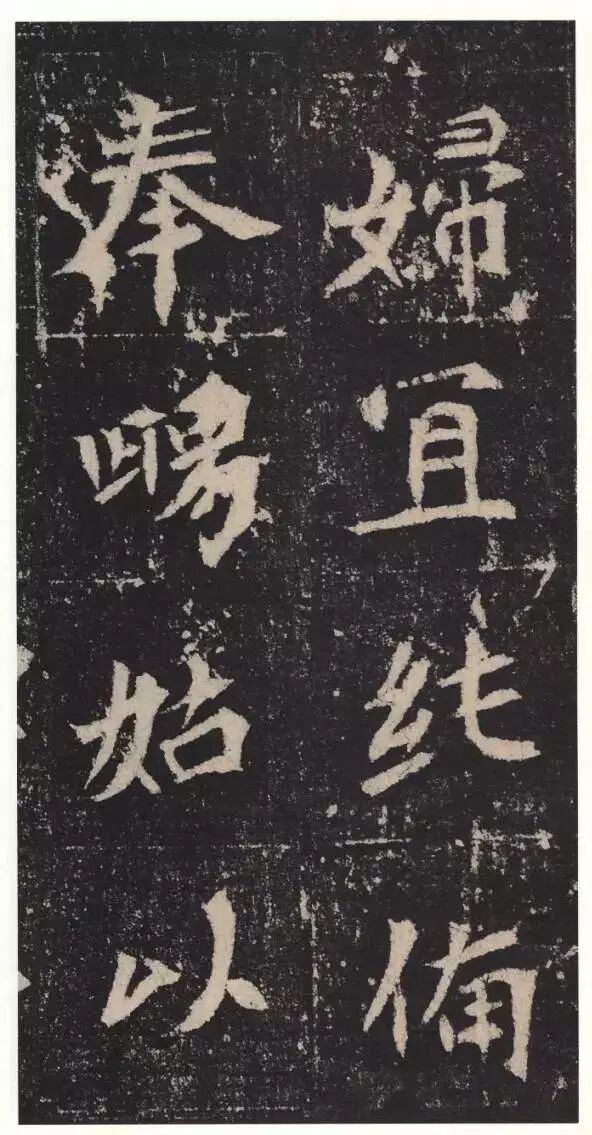 婦宜純備
奉舅姑以